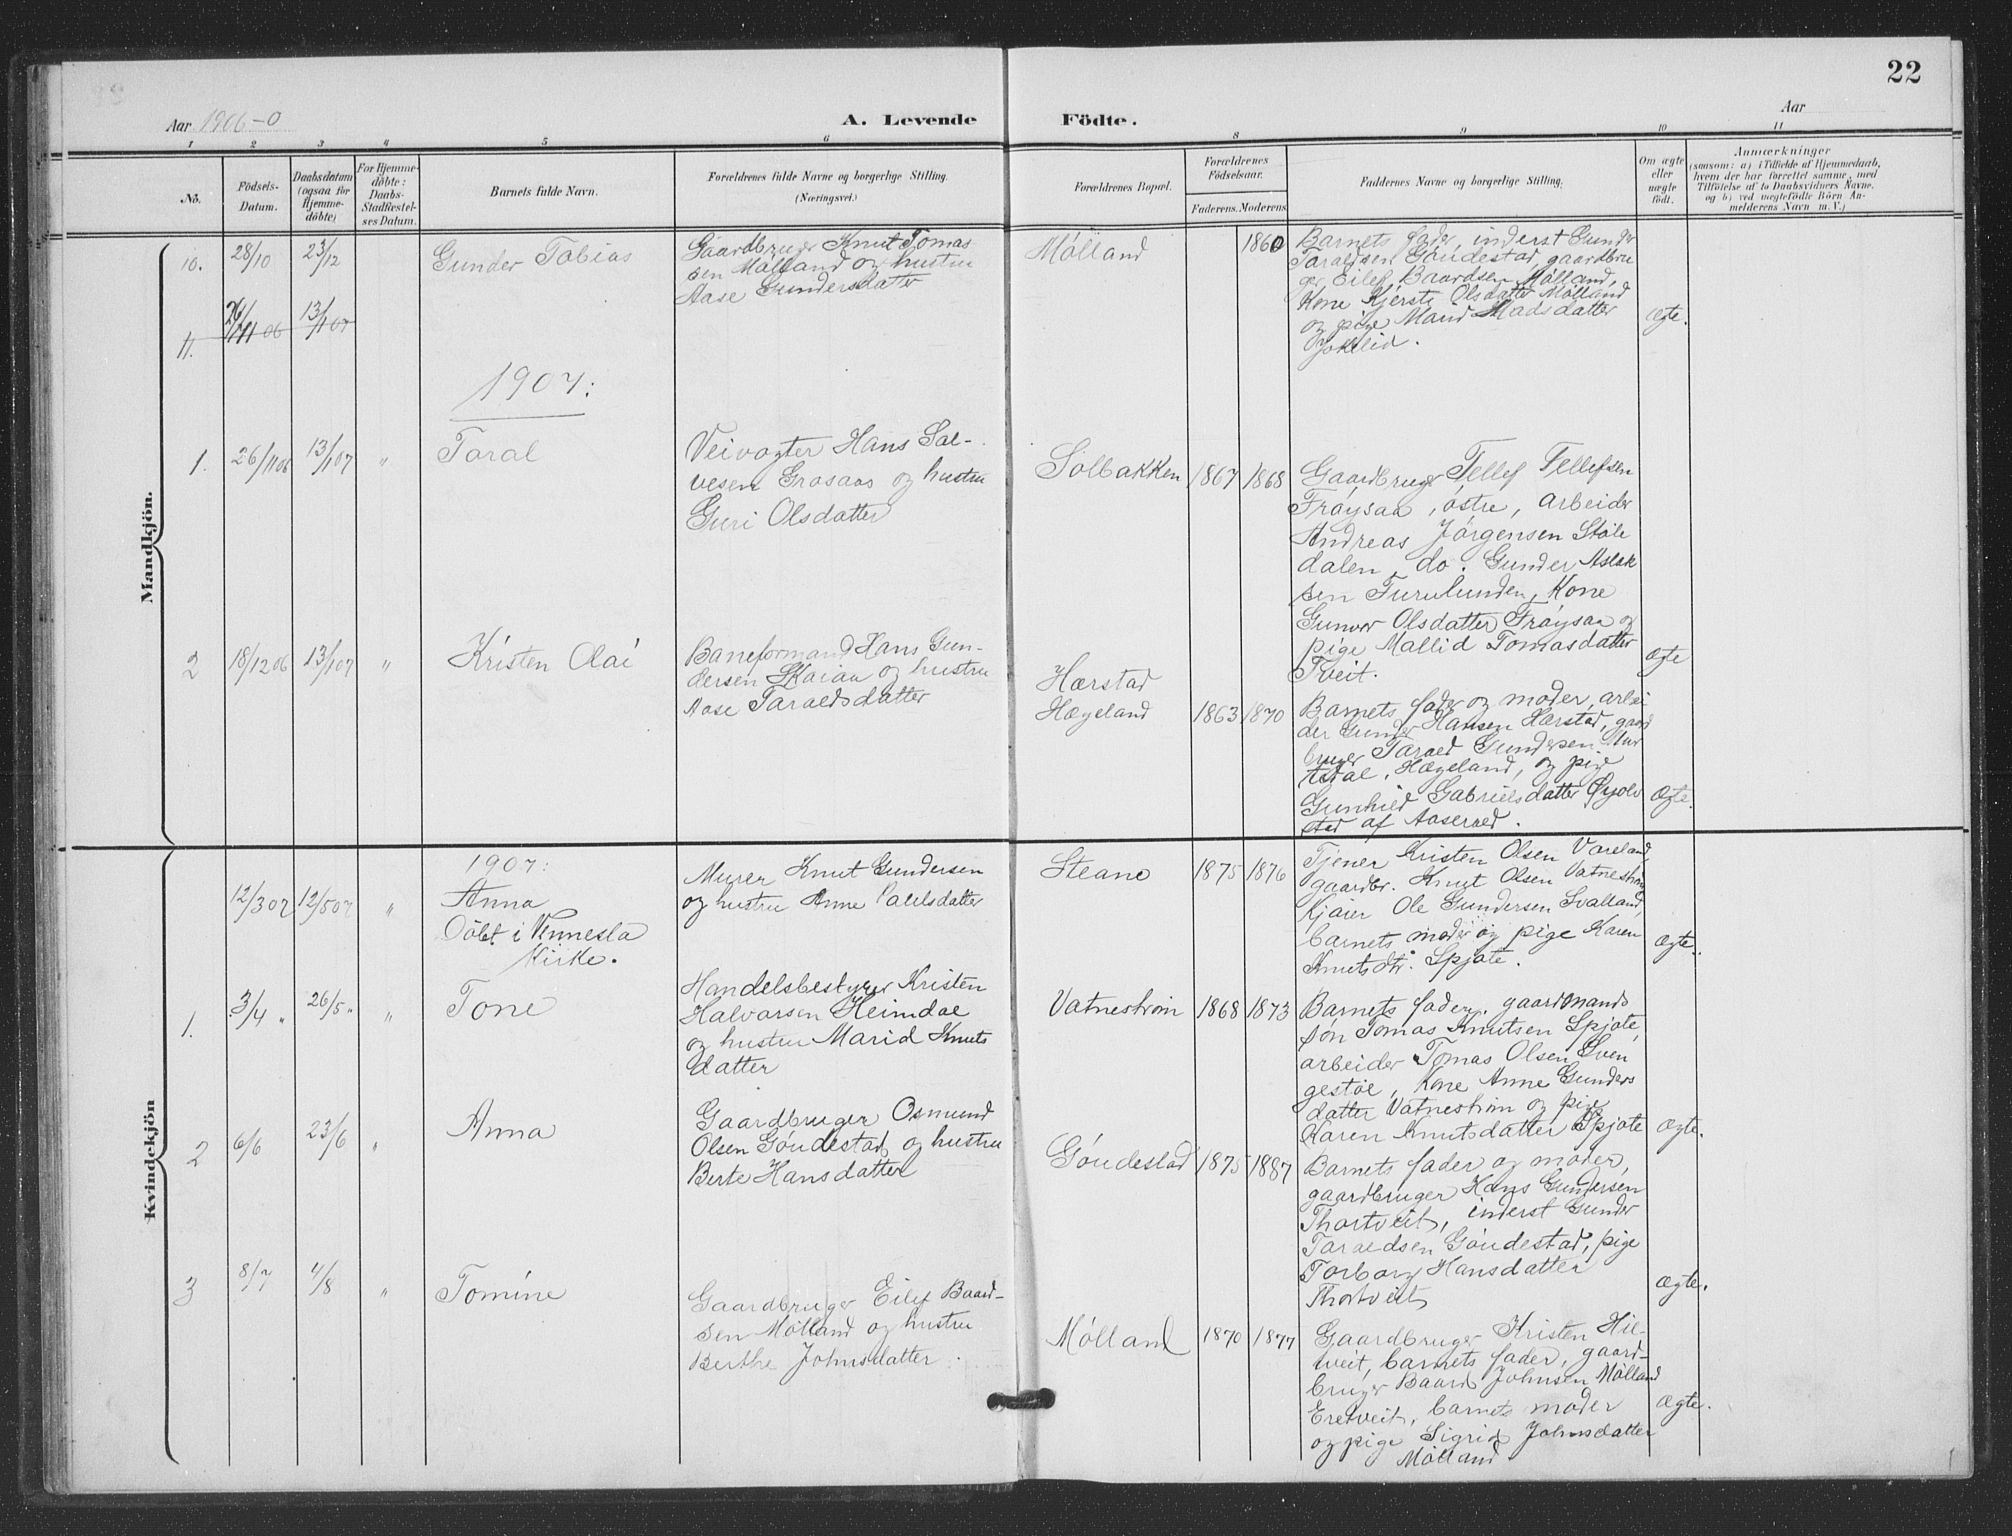 22
Aar 1906-0
A. Levende Födte.
Aar
1 2 3 4 5 6 8 9 10 11
No.
Födsels-
Datum.
Daabsdatum
(ogsaa for
Hjemme-
döbte)
For Hjemme-
döbte:
Daabs-
Stadfæstel-
ses Datum.
Barnets fulde Navn.
Forældrenes fulde Navne og borgerlige Stilling.
(Næringsvei.)
Forældrenes Bopæl.
Forældrenes
Födselsaar.
Faderens. Moderens
Faddernes Navne og borgerlige Stilling.
Om ægte
eller
uægte
födt.
Anmærkninger
(saasom: a) i Tilfælde af Hjemmedaab,
hvem der har forrettet samme, med
Tilföielse af to Daabsvidners Navne.
og b) ved uægtefödte Börn An-
melderens Navn m. V.)
Mandkjön.
10. 28/10 23/12
Gunder Tobias
Gaardbruger Knut Tomas
sen Mølland og hustru
Aase Gundersdatter
Mølland
1860
Barnets fader, inderst Gunder
Taraldsen Göudestad, gaardbru
ger Eilef Baardsen Mølland,
Kone Kjersti Olsdatter Mølland
og pige Madsdatter
ægte.
11. 26/11 06 13/1 07
1907:
1. 26/11 06 13/1 07 "
Taral
Veivogter Hans Sal-
vesen Grosaas og hustru
Guri Olsdatter
Solbakken
1867 1868
Gaardbruger Tellef Tellefsen
Fröysaa, östre, arbeider
Andreas Jørgensen Støle
dalen, do. Gunder Aslak
sen Furulunden, Kone
Gunvor Olsdatter Fröysaa og
pige Mallid Tomasdatter
Tveit.
ægte
2 18/12 06 13/1 07 "
Kristen Olai
Baneformand Hans Gun-
dersen Skaiaa og hustru
Aase Taraldsdatter
Hærstad
Hægeland
1863 1870
Barnets fader og moder, arbei
der Gunder Hansen Hærstad, gaard
bruger Tarald Gundersen
Hægeland, og pige
Gunhild Gabrielsdatter Øyjolv
stad af Aaseral.
Ægte.
Kvindekjön
1907:
12/3 07 12/5 07 "
Anna
Döbt i Vennesla
Kirke.
Murer Knut Gundersen
og hustru Anne Palilsdatter
Steane
1875 1876
Tjener Kristen Olsen Vareland,
gaardbr. Knut Olsen Vatnestrøm,
Ole Gundersen Svalland,
barnets moder og pige Karen
Knutsdtr. Spjøte.
ægte.
1. 3/4 " 26/5 " "
Tone
Handelsbestyrer Kristen
Halvorsen Heimdal
og hustru Marid Knuts
datter
Vatnestrøm
1868 1873
Barnets fader, gaardmands
søn Tomas Knutsen Spjøte,
arbeider Tomas Olsen Sven
gestøl, Kone Anne Gunders
datter Vatnestrøm og pige
Karen Knutsdatter Spjøte
ægte.
2 6/6 23/6 "
Anna
Gaardbruger Osmund
Olsen Göudestad og hustru
Berte Hansdatter
Göudestad
1875 1887
Barnets fader og moder,
gaardbruger Hans Gundersen
Thortveit, inderst Gunder
Taraldsen Göudestad, pige
Torborg Hansdatter
Thortveit
ægte.
3 8/7 4/8 "
Tomine
Gaardbruger Eilef Baard-
sen Mølland og hustru
Berthe Johnsdatter.
Mølland
1870 1877
Gaardbruger Kristen Hil-
tveit, barnets fader, gaard-
bruger Baard Johnsen Mølland
Eretveit, barnets moder
og pige Sigrid Johnsdatter
Mølland
ægte.